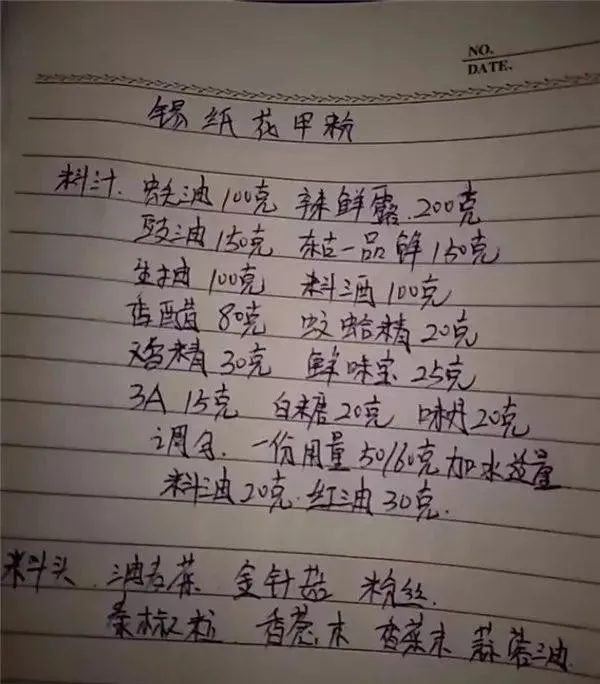 NO.
DATE.
锡纸花甲粉
料汁. 蚝油100克 辣鲜露.200克
豉油150克 东古一品鲜150克
生抽100克 料酒100克
香醋80克 蚊蛤精20克
鸡精30克 鲜味宝25克
3A 15克 白糖20克 味丹20克
调匀. 一份用量50/60克加水适量
料油20克.红油30克.
料斗头 油麦菜 金针菇 粉丝.
秦椒粒 香葱末 香菜末 蒜蓉油